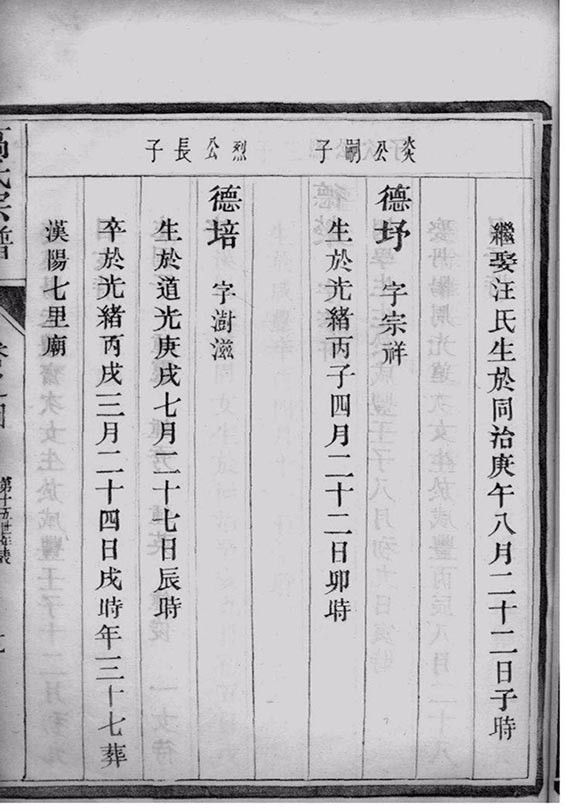 繼娶汪氏生於同治庚午八月二十二日子時
炎公嗣子
德㘧 字宗祥
生於光緒丙子四月二十二日卯時
烈公長子
德培 字澍滋
生於道光庚戌七月二十七日辰時
卒於光緒丙戌三月二十四日戌時年三十七葬
漢陽七里廟
氏宗譜
第十五世年表